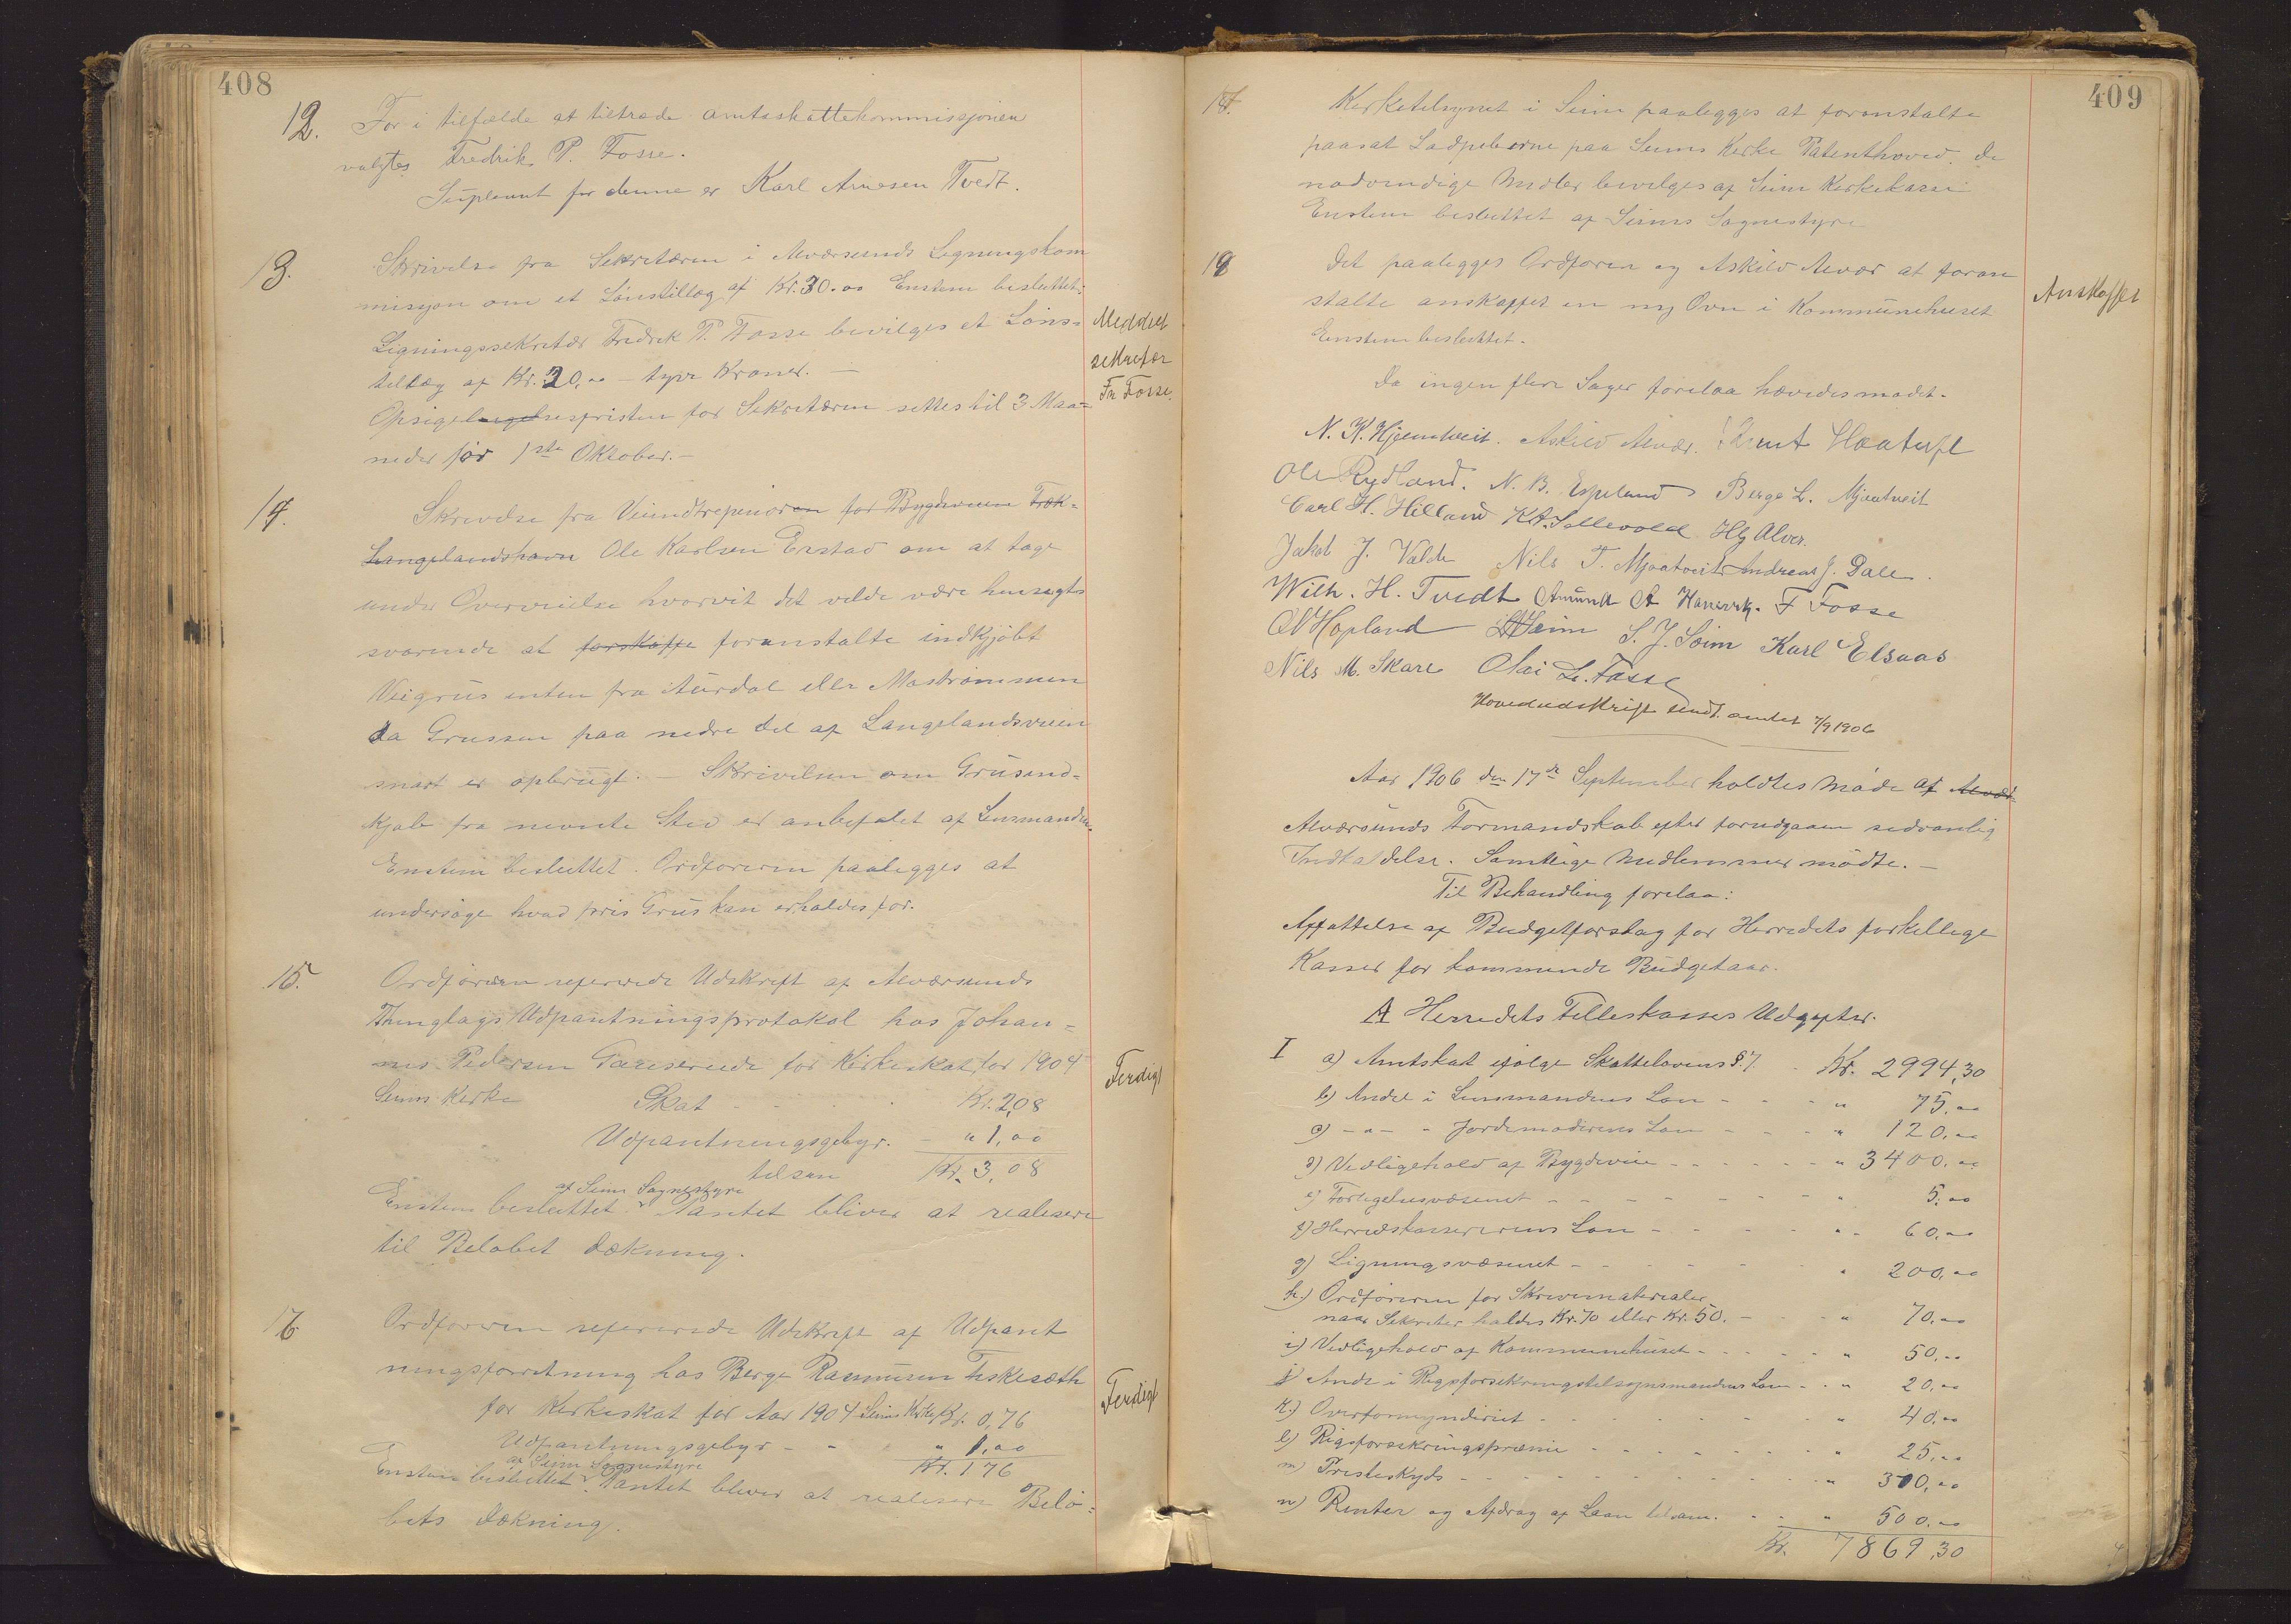 408
12. For i tilfælde at tiltræde Amtsskattekommissjonen
valgtes Fredrik P. Fosse.
Supleant for denne er Karl Arnesen Tvedt.
13. Skrivelse fra Sekretæren i Alværsunds Ligningskom
misjon om et Lönstillæg af Kr. 30.00 Enstem besluttet:
Ligningssekretær Fredrik P. Fosse bevilges et Löns=
tillæg af Kr. 20,00 – tyve Kroner. –
Opsigelsesfristen for Sekretæren settes til 3 Maa=
neder för 1ste Oktober. –
Meddelt
sekretær
Fr Fosse.
14. Skrivelse fra Veientreprenören for Bygdeveien Fæk=
Langelandshavn Ole Karlsen Erstad om at tage
under Overveielse hvorvit det vilde være hensigts
svarende at forskaffe foranstalte indkjöbt
Veigrus enten fra Aurdal eller Mostrommen
da Grussen paa nedre del af Langelandsveien
snart er opbrugt. – Skrivelsen om Grusind=
kjöb fra nevnte Sted er anbefalet af Lensmanden
Enstem besluttet. Ordföreren paalegges at
undersöge hvad pris Grus kan erholdes for.
15. Ordföreren refererede Udskrift af Alværsunds
Thinglags Udpantningsprotokol hos Johan=
nes Pedersen for Kirkeskat for 1904
Seims Kirke Skat Kr. 2,08
Udpantningsgebyr. – " 1,00
tilsam Kr. 3,08
af Seim Sognestyre
Enstem besluttet. Pantet bliver at realisere
til Belöbet dækning.
Ferdigt
16 Ordföreren refererede Udskrift af Udpant
ningsforretning hos Berge Rasmusen Fiskesæth
for Kirkeskat for Aar 1904 Seims Kirke Kr. 0,76
Udpantningsgebyr – - " 1,00
Kr. 1 76
af Seim Sognestyre
Enstem besluttet. Pantet bliver at realisere Belö=
bets dækning.
Ferdigt
409
17. Kirketilsynet i Seim paalegges at foranstalte
paasat Ladpiberne paa Seims Kirke Patenthoved. De
nödvendige Midler bevilges af Seim Kirkekasse
Enstem besluttet af Seims Sognestyre
18 Det paalegges Ordfören og Askild Alvær at foran
stalte anskaffet en ny Ovn i Kommunehuset
Enstem besluttet.
Anskaffet
Da ingen flere Sager forelaa hævedes mödet.
N. K. Hjelmtveit. Askild Alvær. Knut
Ole Rydland. N. B. Espeland Berge L. Mjaatveit
Carl H. Hilland K A. Sellevold Hg Alver.
Jakob J. Valde Nils T. Mjaatveit Andreas J. Dale.
Wilh. H. Tvedt Amund A Hanevik. F Fosse
O N Hopland Seim S. J. Soim Karl Elsaas
Nils M. Skare Olai L. Fosse
Hovedudskrift sendt amtet 7/9 1906
Aar 1906 den 17de September holdtes Möde af Alvær
Alværsunds Formandskab efter forudgaaen sedvanlig
Indkaldelse. Samtlige Medlemmer mödte. –
Til Behandling forelaa:
Affattelse af Budgetforslag for Herredets forkellige
Kasser for kommende Budgetaar.
A Herredets Felleskasses Udgifter.
I a) Amtskat ifölge Skattelovens § 7. – Kr. 2994,30
b) Andel i Lensmandens Lön - - - " 75,00
c) –"– " Jordemoderens Lön - - - " 120,00
d) Vedligehold af Bygdeveie - - - - - " 3400,00
e) Forligelsesvæsenet - - - - - - " 5,00
f) Herredskassererens Lön - - - - " 60,00
g) Ligningsvæsenet - - - - - - " 200,00
h.) Ordföreren for Skrivematerialer
naar Sekretær holdes Kr. 70 eller Kr. 50. - - - " 70,00
i) Vedligehold af Kommunehuset - - - - - " 50,00
j) Andel i Rigsforsekringstilsynsmandens Lön - - " 20,00
k.) Overformynderiet - - - - - - " 40,00
l) Rigsforsekringspræmie - - - - - - - " 25,00
m) Presteskyds - - - - - - - - " 310,00
n) Renter og Afdrag af Laan tilsam. - - " 500,00
Kr. 7869,30